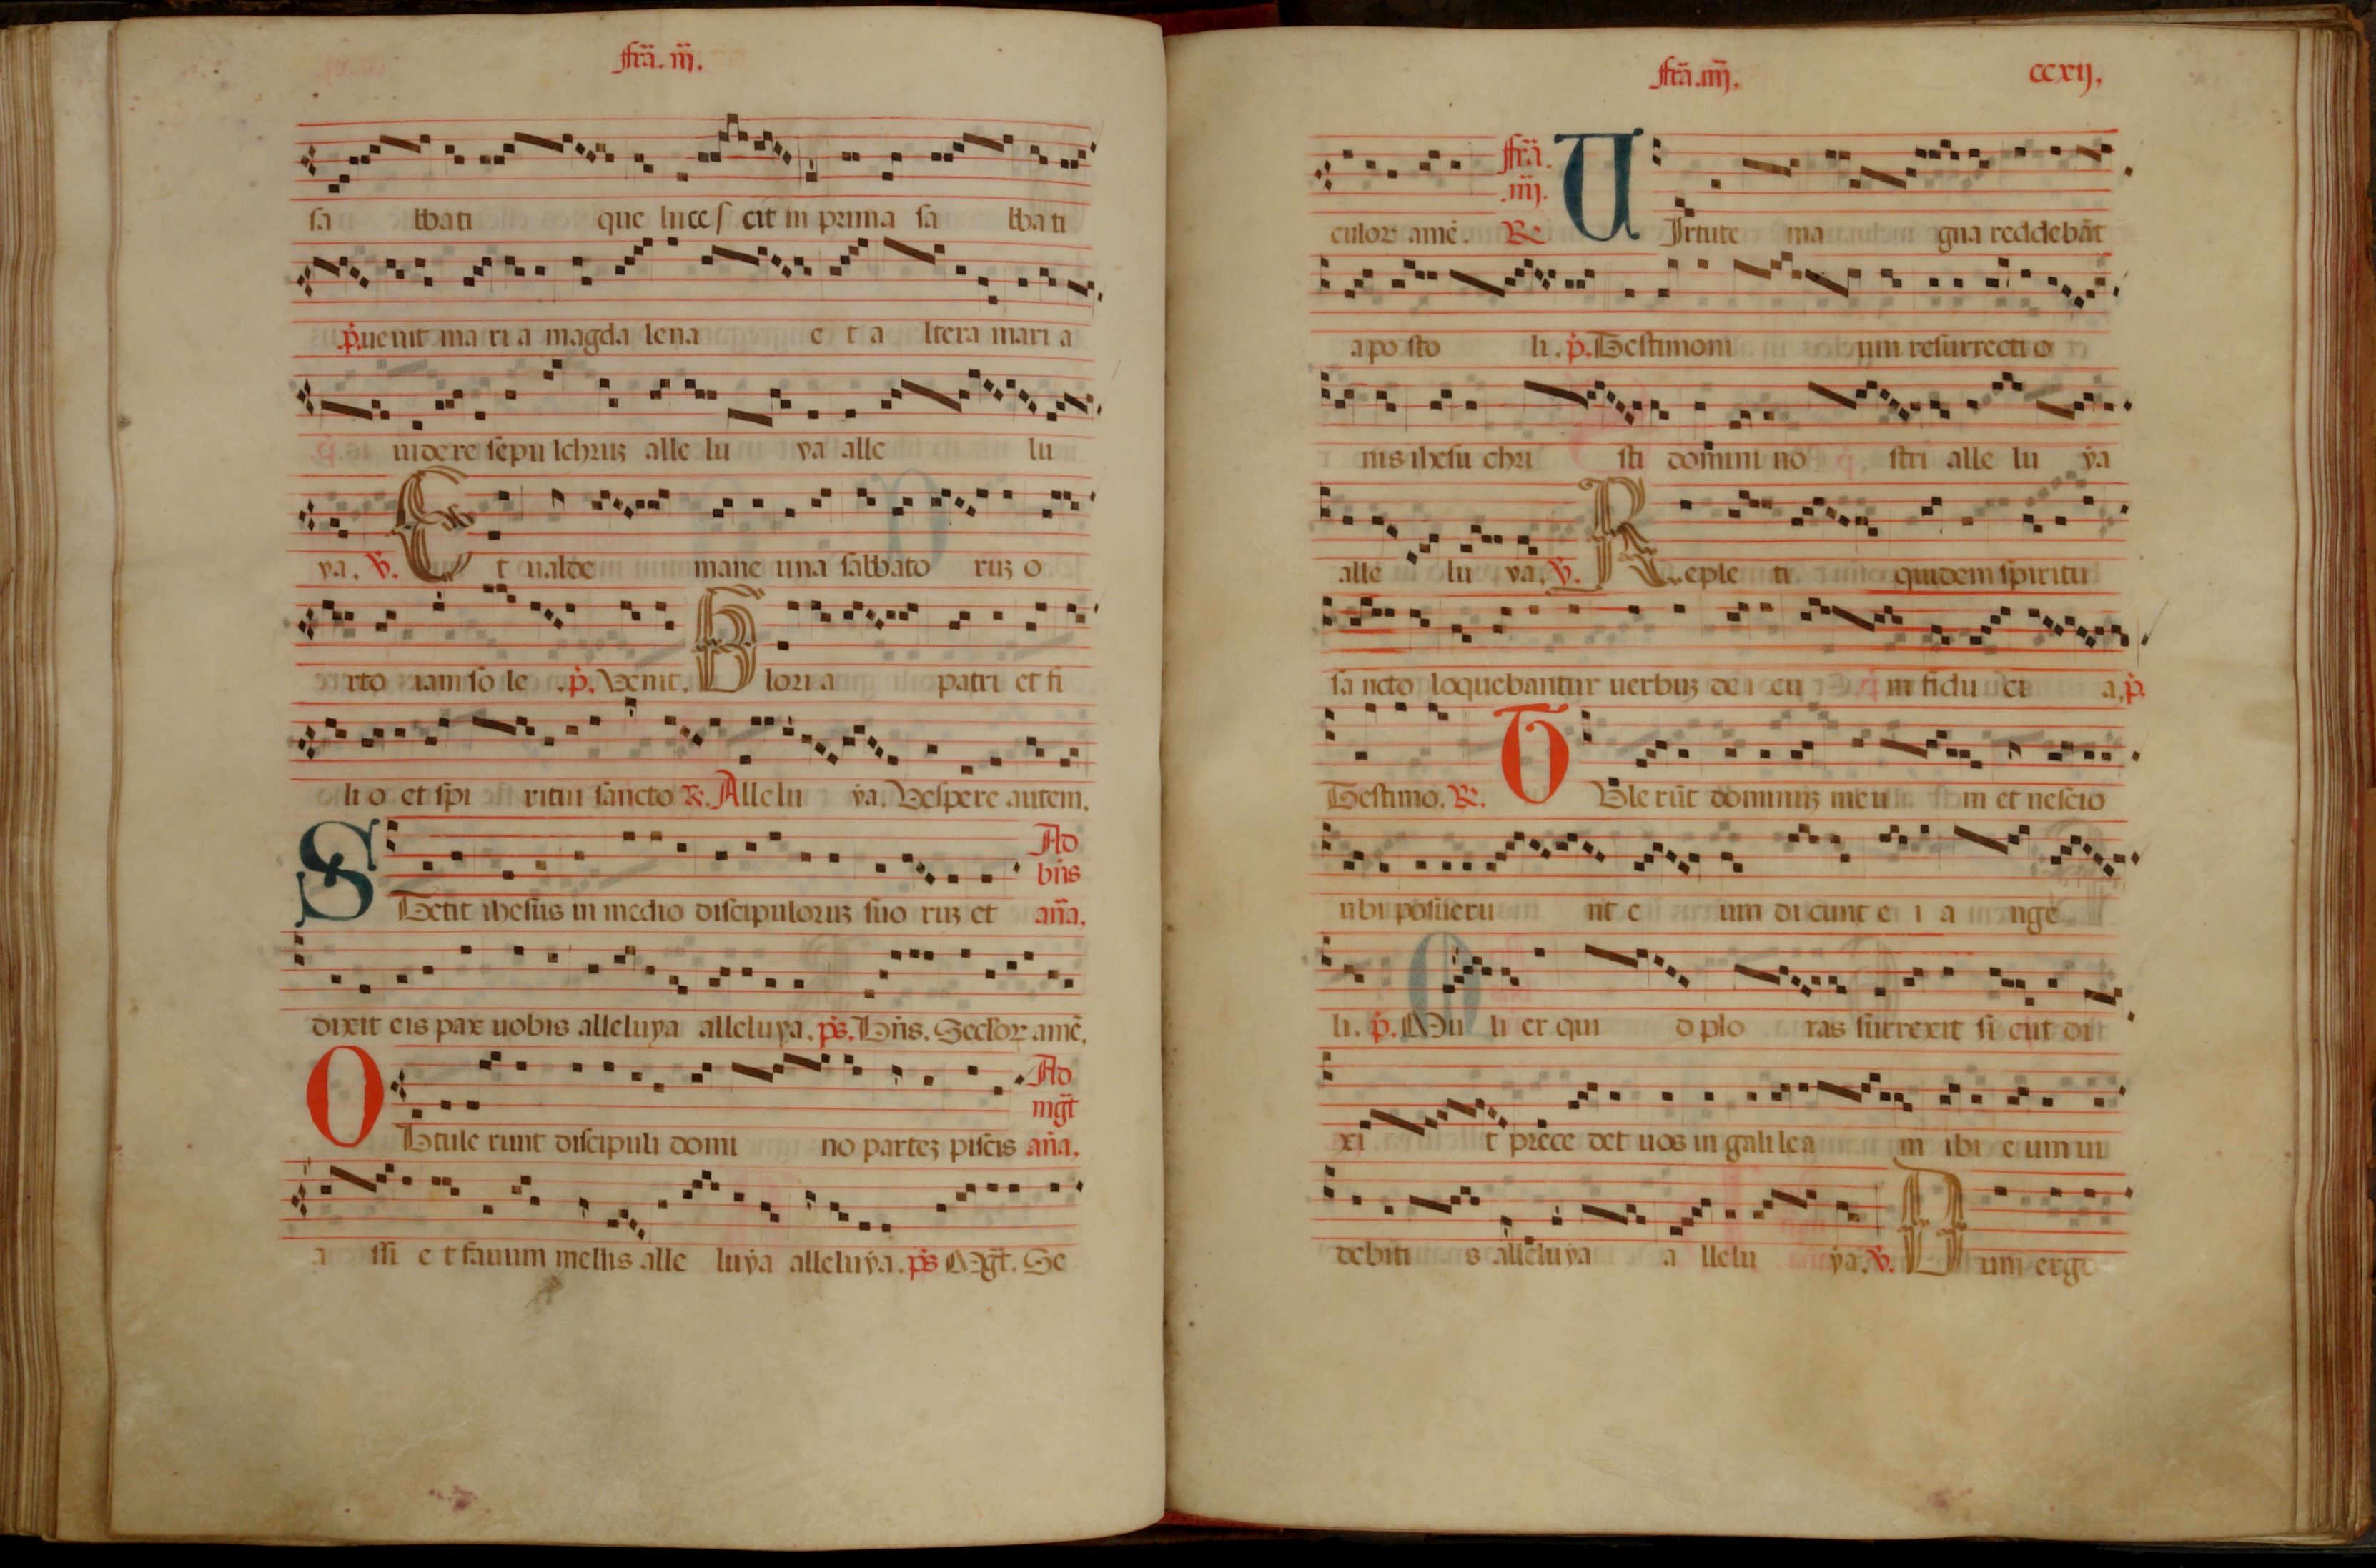 fr̄a. iij.
sa bbati que luce s cit in prima sa bbati
p̄. uenit ma ri a magda lena e t a ltera mari a
uidere sepu lchruꝫ alle lu ya alle lu
ya. v̄. E t ualde mane una sabbato ruꝫ o
rto iam so le . p̄. Venit. G lori a patri et fi
li o et spi ritui sancto ℟. Allelu ya. Vespere autem.
S Tetit ihesus in medio discipuloruꝫ suo ruꝫ et Ad bn̄s an̄a.
dixit eis pax uobis alleluya alleluya. ps̄. Bn̄s. Seclꝛ amē.
O Btule runt discipuli domi no parteꝫ piscis Ad mḡt an̄a.
a ssi e t fauum mellis alle luya alleluya. ps̄ Mḡt. Se
fr̄a. iiij. ccxij.
culoꝛ amē. fr̄a. iiij. ℟ U Irtute ma gna reddebāt
apo sto li. p̄. Testimoni um resurrecti o
nis ihesu chri sti domini no stri alle lu ya
alle lu ya. v̄. R eple ti quidem spiritu
sa ncto loquebantur uerbuꝫ de i cu m fidu ci a. p̄.
Testimo. ℟. T Vle rūt dominuꝫ meu m et nescio
ubi posueru nt e um dicunt e i a nge
li. p̄. Mu li er qui d plo ras surrexit si cut di
xi t prece det uos in galilea m ibi e um ui
debiti s alleluya a llelu ya. v̄. D um ergo